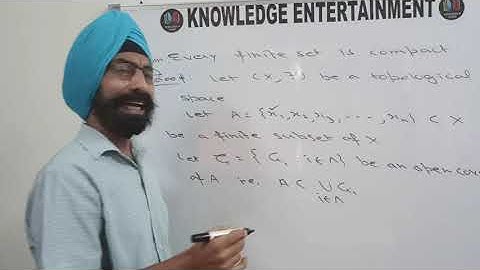 KNOWLEDGE ENTERTAINMENT
Every finite set is compact
Proof: Let (X, T) be a topological
space
Let A = {x₁, x₂, x₃, ----, xₙ} ⊂ X
be a finite subset of X
Let = { Gᵢ : i∈Λ } be an open cover
of A i.e. A ⊂ ∪ Gᵢ
i∈Λ